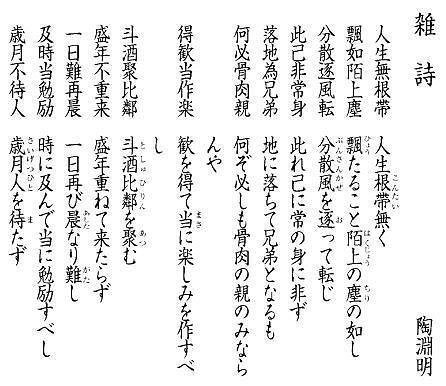 雑詩
陶淵明
人生無根帯
飄如陌上塵
分散逐風転
此己非常身
落地為兄弟
何必骨肉親
得歓当作楽
斗酒聚比鄰
盛年不重来
一日難再晨
及時当勉励
歳月不待人
こんたい
人生根帯無く
ひょう はくじょう ちり
飄たること陌上の塵の如し
ぶんさんかぜ お
分散風を逐って転じ
此れ己に常の身に非ず
地に落ちて兄弟となるも
何ぞ必しも骨肉の親のみなら
んや
まさ
歓を得て当に楽しみを作すべ
し
としゅひりん あつ
斗酒比鄰を聚む
盛年重ねて来たらず
あした がた
一日再び晨なり難し
時に及んで当に勉励すべし
さいげつひと ま
歳月人を待たず